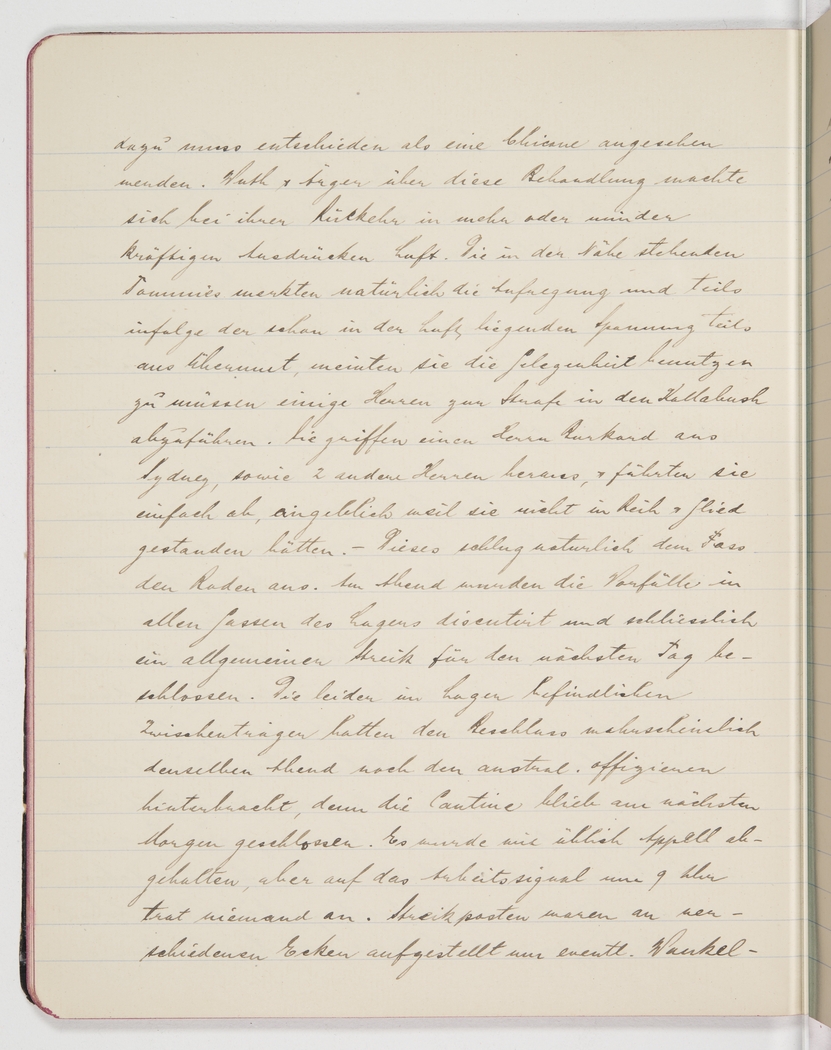 dazu muss entschieden als eine Chicane angesehen
werden. Wuth & Ärger über diese Behandlung machte
sich bei ihrer Rückkehr in mehr oder minder
kräftigen Ausdrücken Luft. Die in der Nähe stehenden
Tommies merkten natürlich die Aufregung und teils
infolge der schon in der Luft liegenden Spannung teils
aus Übermut, meinten sie die Gelegenheit benutzen
zu müssen einige Herren zur Strafe in den Kallabush
abzuführen. Sie griffen einen Herrn Burkard aus
Sydney, sowie 2 andere Herren heraus, & führten sie
einfach ab, angeblich weil sie nicht in Reih & Glied
gestanden hätten. – Dieses schlug natürlich dem Fass
den Boden aus. Am Abend wurden die Vorfälle in
allen Gassen des Lagers discutirt und schliesslich
ein allgemeiner Streik für den nächsten Tag be-
schlossen. Die leider im Lager befindlichen
Zwischenträger hatten den Beschluss wahrscheinlich
denselben Abend noch den austral. Offizieren
hinterbracht, denn die Cantine blieb am nächsten
Morgen geschlossen. Es wurde wie üblich Appell ab-
gehalten, aber auf das Arbeitssignal um 9 Uhr
trat niemand an. Streikposten waren an ver-
schiedenen Ecken aufgestellt um eventl. Wankel-